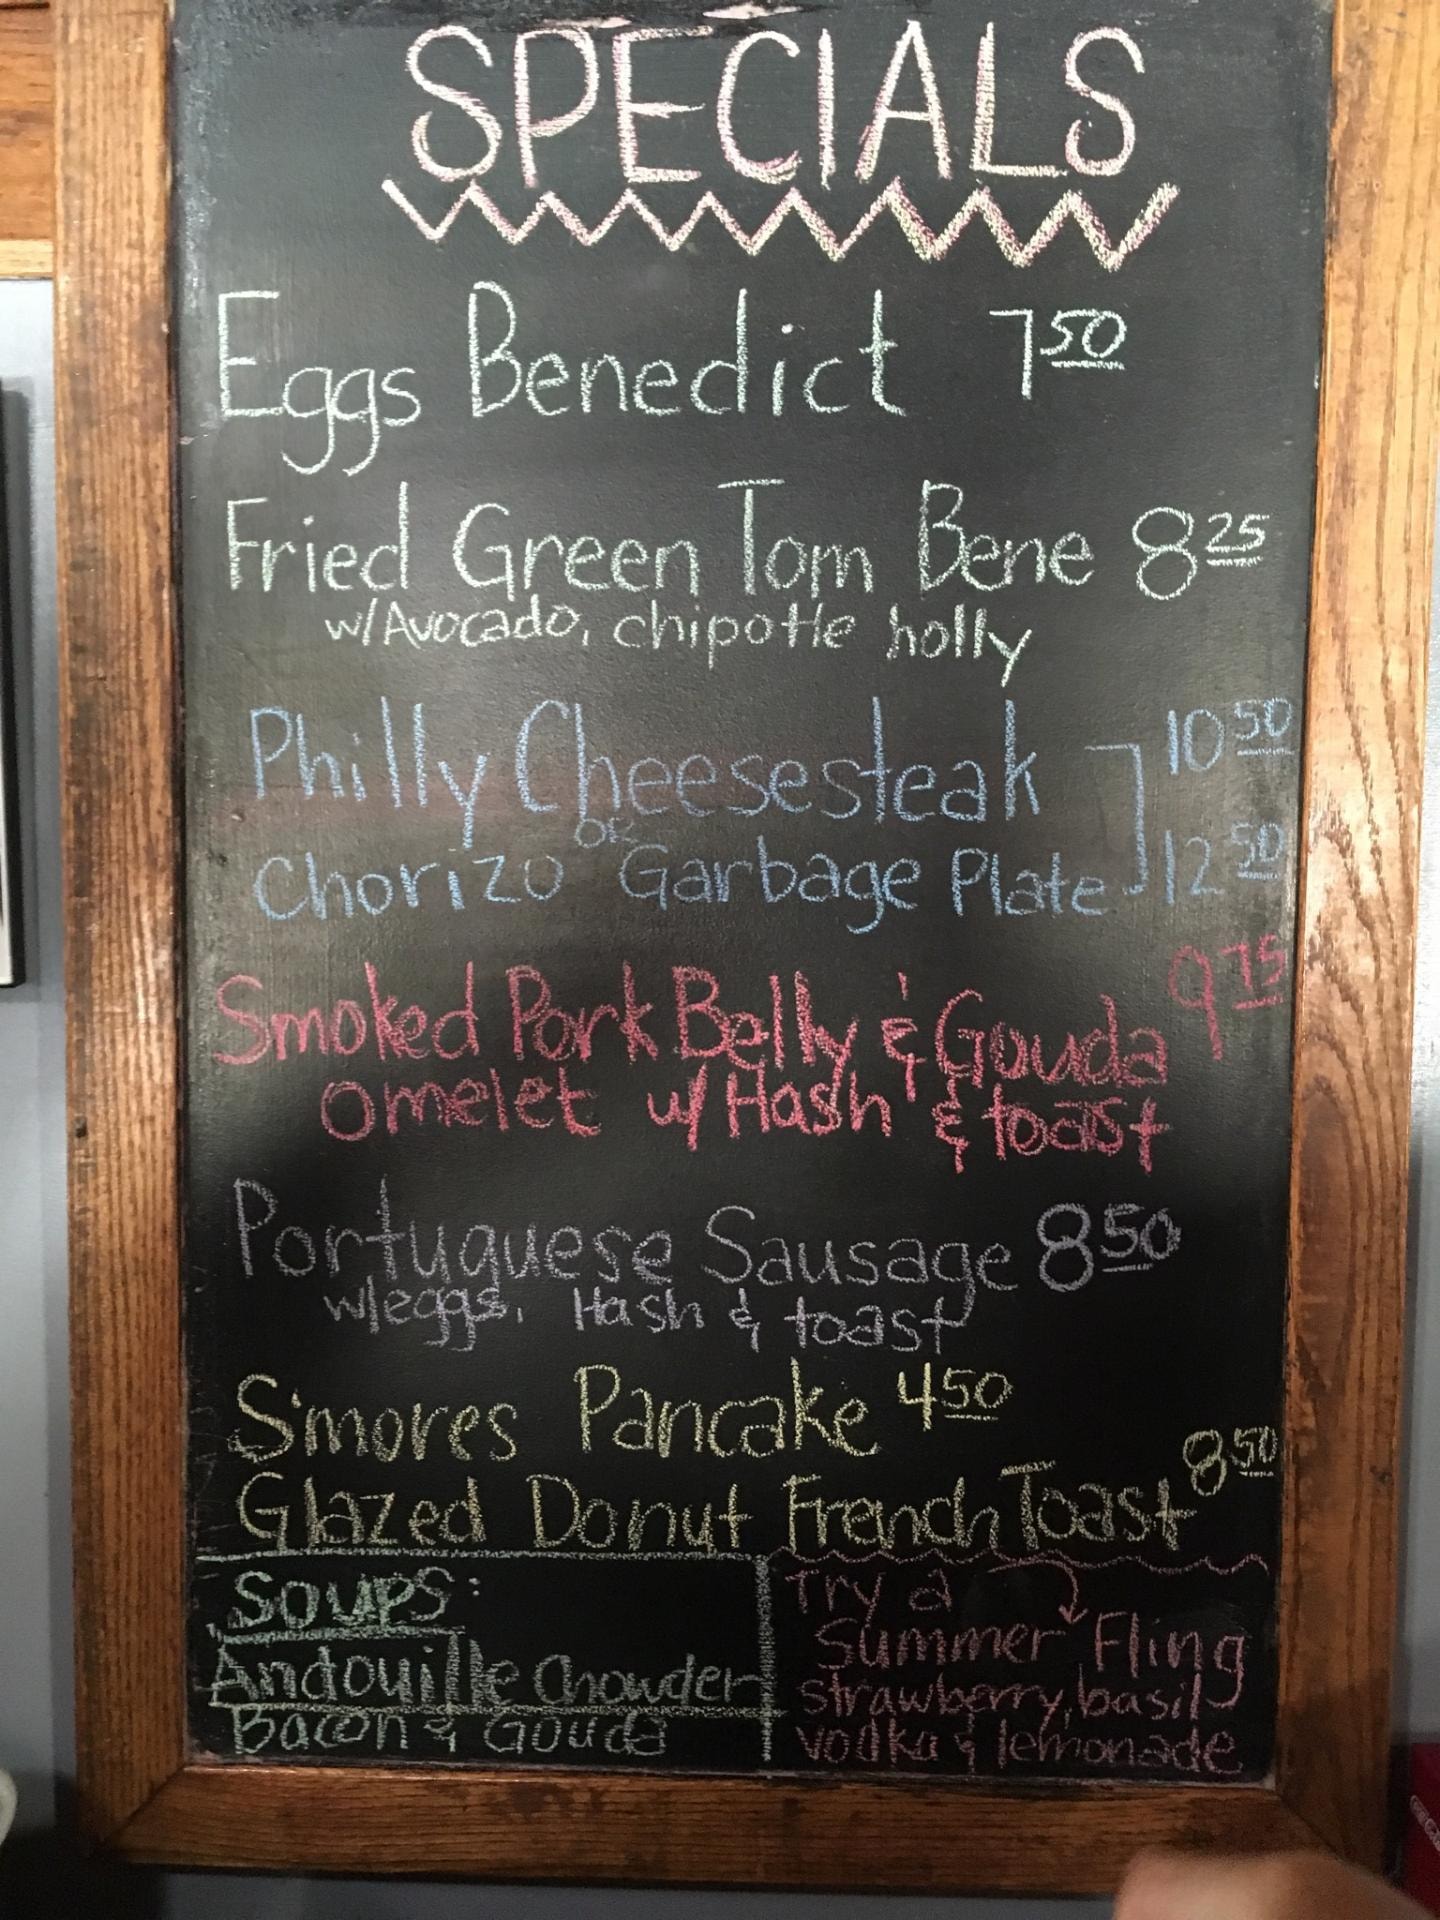 SPECIALS
Eggs Benedict 7 50
Fried Green Tom Bene 8 25
w/Avocado, chipotle holly
Philly Cheesesteak 10 50
OR
Chorizo Garbage Plate 12 50
Smoked Pork Belly & Gouda 9 75
Omelet w/Hash & toast
Portuguese Sausage 8 50
w/eggs, Hash & toast
S'mores Pancake 4 50
Glazed Donut French Toast 8 50
Soups:
Andouille Chowder
Bacon & Gouda
Try a
Summer Fling
strawberry, basil
vodka & lemonade